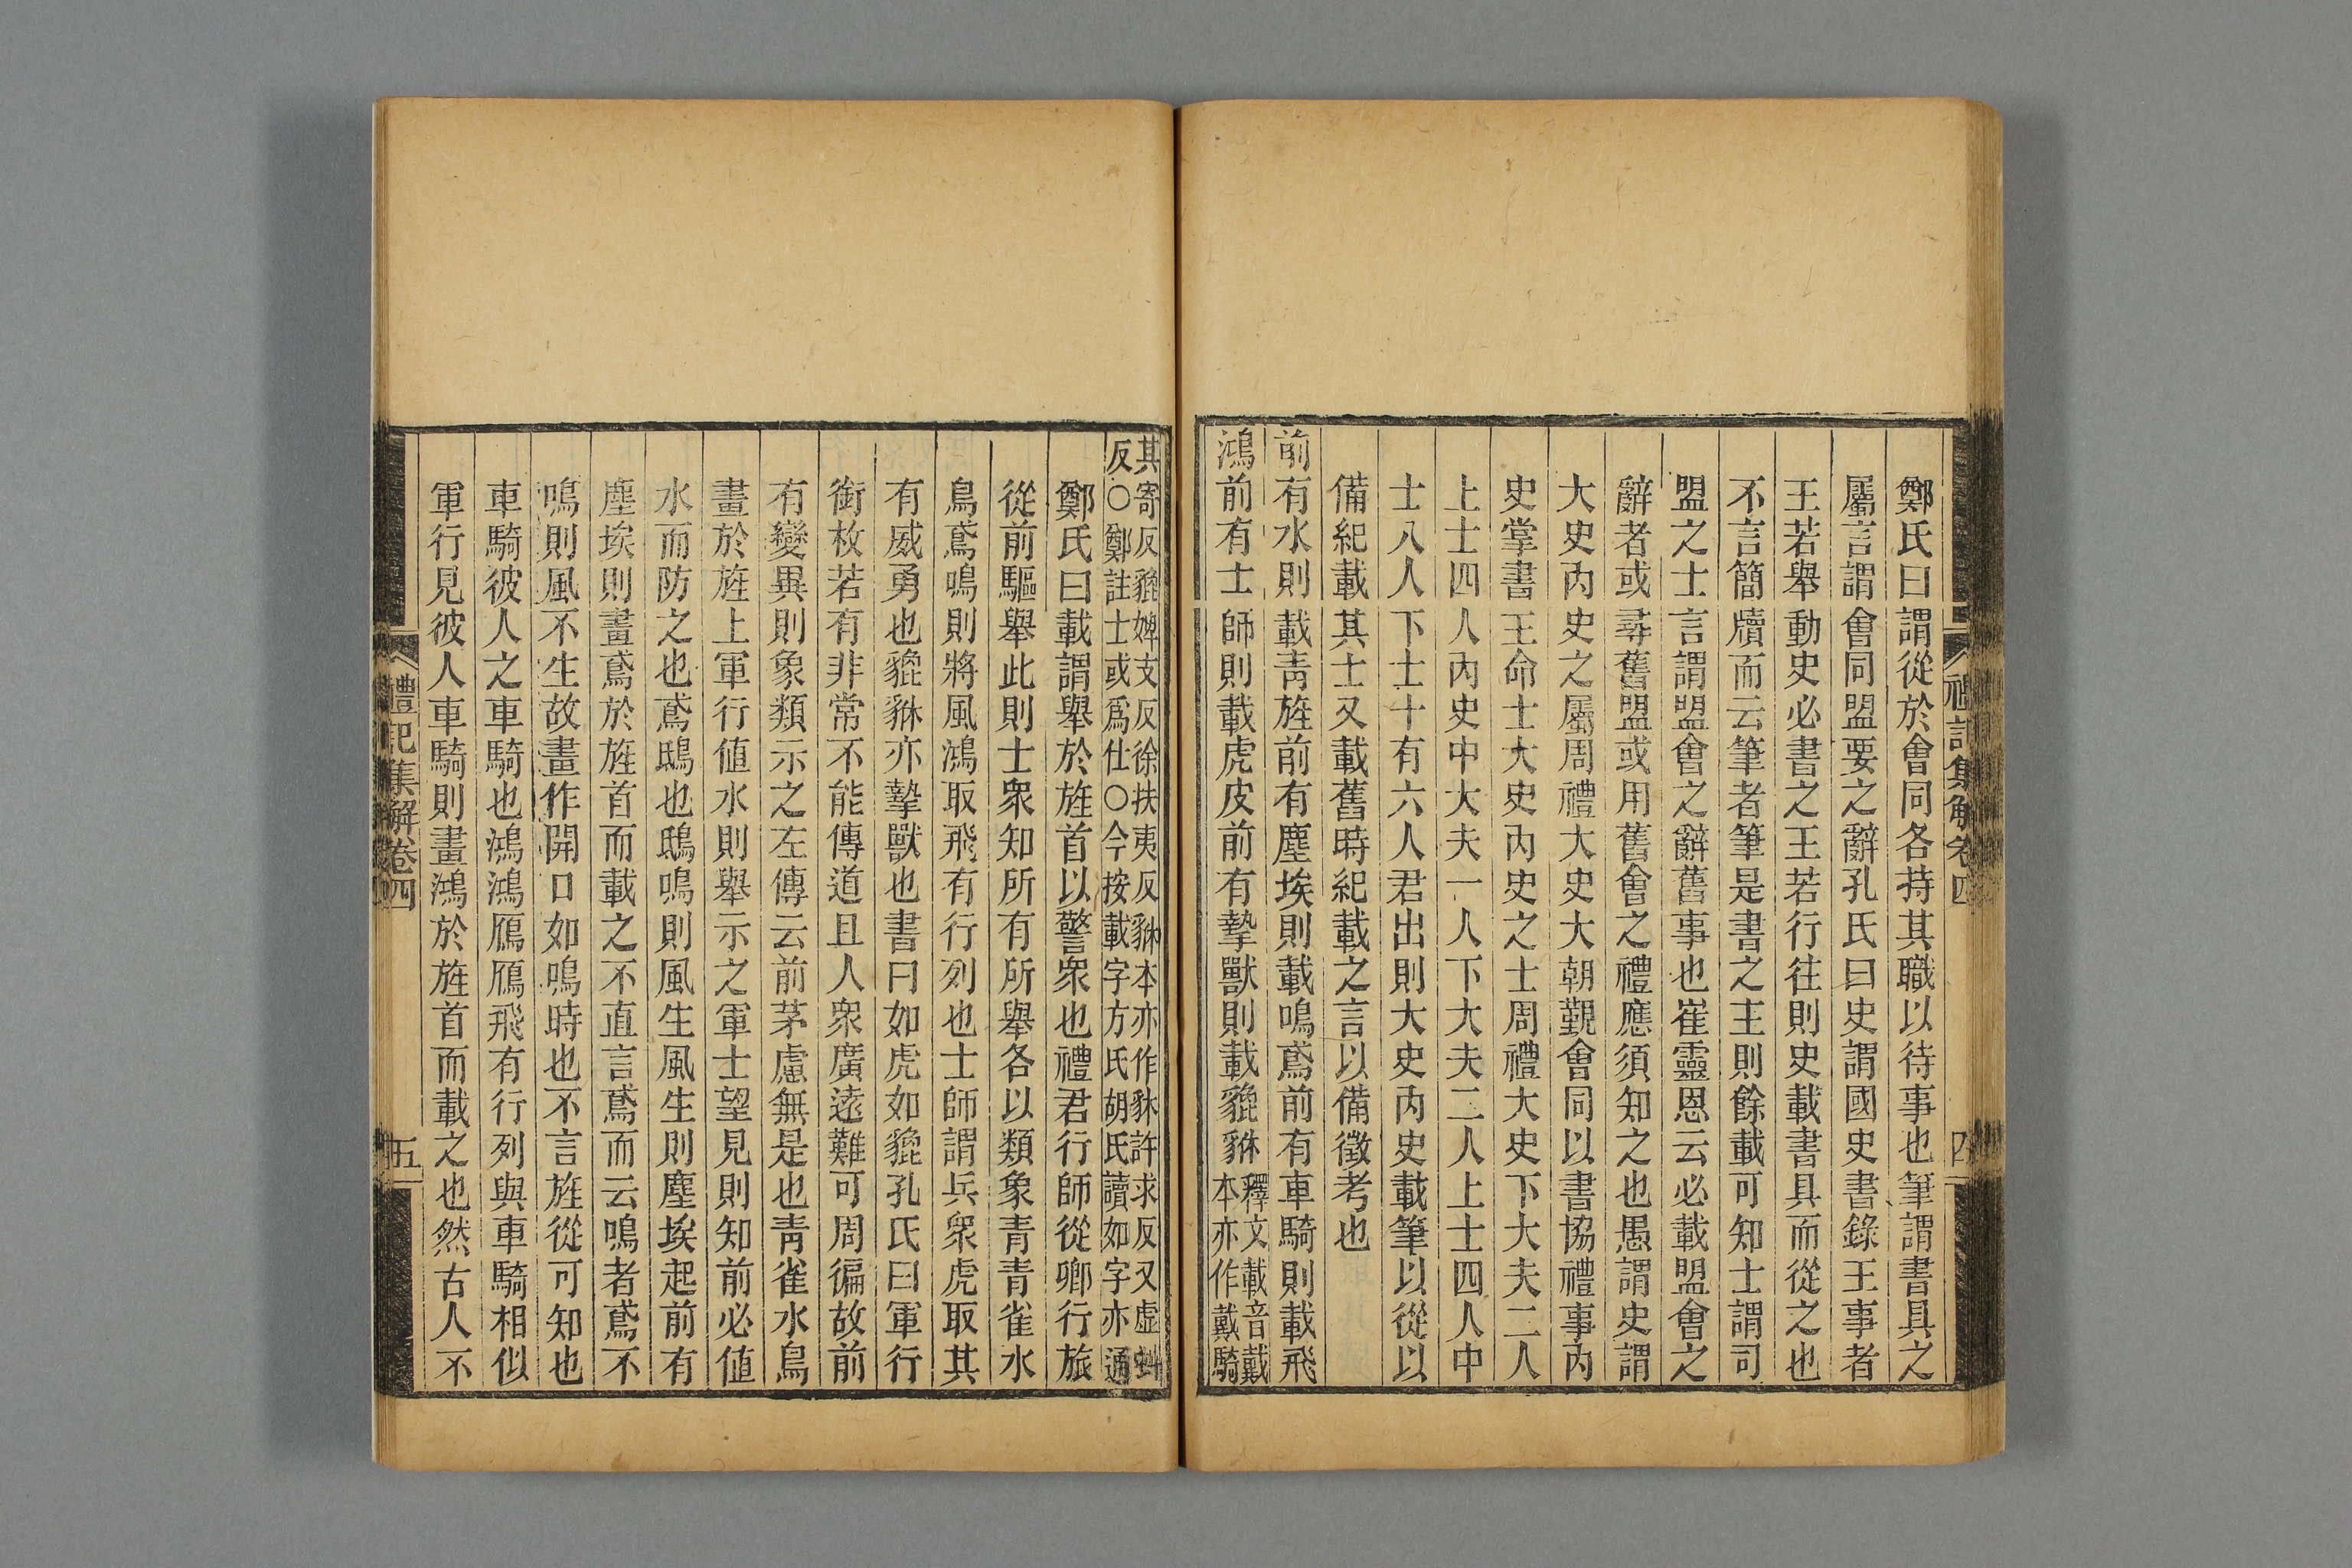 禮記集解卷四
四
鄭氏曰謂從於會同各持其職以待事也筆謂書具之
屬言謂會同盟要之辭孔氏曰史謂國史書錄王事者
王若舉動史必書之王若行往則史載書具而從之也
不言簡牘而云筆者筆是書之主則餘載可知士謂司
盟之士言謂盟會之辭舊事也崔靈恩云必載盟會之
辭者或尋舊盟或用舊會之禮應須知之也愚謂史謂
大史內史之屬周禮大史大朝覲會同以書協禮事內
史掌書王命士大史內史之士周禮大史下大夫二人
上士四人內史中大夫一人下大夫二人上士四人中
士八人下士十有六人君出則大史內史載筆以從以
備紀載其士又載舊時紀載之言以備徵考也
前有水則載靑旌前有塵埃則載鳴鳶前有車騎則載飛
鴻前有士師則載虎皮前有摯獸則載貔貅釋文載音戴
本亦作戴騎
其寄反貔婢支反徐扶夷反貅本亦作貅許求反又虛虯
反○鄭註士或爲仕○今按載字方氏胡氏讀如字亦通
鄭氏曰載謂舉於旌首以警眾也禮君行師從卿行旅
從前驅舉此則士眾知所有所舉各以類象青青雀水
鳥鳶鳴則將風鴻取飛有行列也士師謂兵眾虎取其
有威勇也貔貅亦摯獸也書曰如虎如貔孔氏曰軍行
銜枚若有非常不能傳道且人眾廣遠難可周徧故前
有變異則象類示之左傳云前茅慮無是也靑雀水鳥
畫於旌上軍行値水則舉示之軍士望見則知前必値
水而防之也鳶鴟也鴟鳴則風生風生則塵埃起前有
塵埃則畫鳶於旌首而載之不直言鳶而云鳴者鳶不
鳴則風不生故畫作開口如鳴時也不言旌從可知也
車騎彼人之車騎也鴻鴻鴈鴈飛有行列與車騎相似
軍行見彼人車騎則畫鴻於旌首而載之也然古人不
禮記集解卷四
五